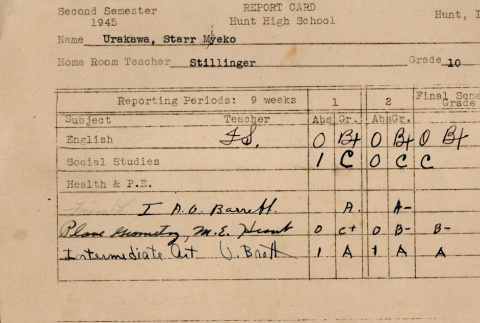 Second Semester REPORT CARD
1945 Hunt High School Hunt, I
Name Urakawa, Starr Myeko
Home Room Teacher Stillinger Grade 10
Reporting Periods: 9 weeks 1 2 Final Seme
Subject Teacher Abs Gr. AbsGr. Grade
English F.S. 0 B+ 0 B+ 0 B+
Social Studies 1 C 0 C C
Health & P.E.
I A.O. Barrett. A. A-
Plane Geometry, M.E. 0 C+ 0 B- B-
Intermediate Art V. Brett 1 A 1 A A